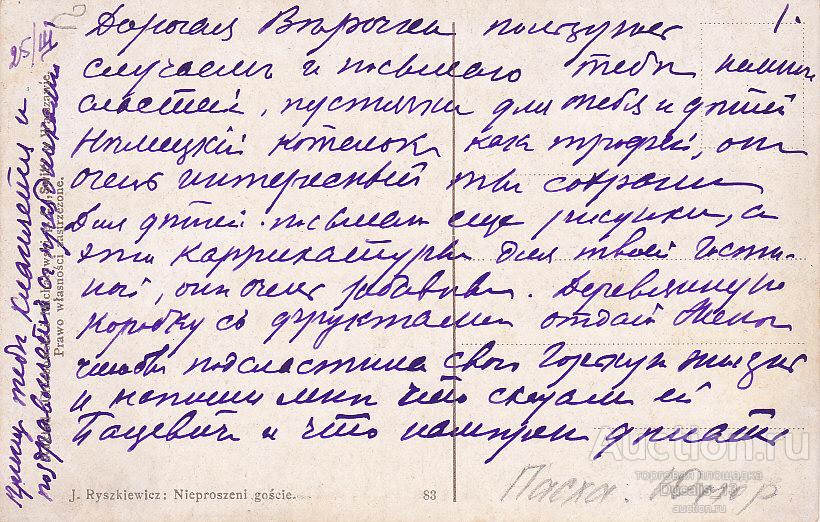 1.
Дорогая Вѣрочка пользуюсь
случаемъ и посылаю тебѣ
сластей, пустячки для тебя и дѣтей
Нѣмецкій котелокъ какъ трофей, онъ
очень интересный ты сохрани
Для дѣтей посылаю еще рисунки, а
эти каррикатуры для твоей Гости-
ной, они очень забавны. Деревянную
коробку съ фруктами отдай
чтобы подсластила свою Горькую жизнь
и напиши мнѣ что сказали ей
и что дѣлать
25/III
тебѣ кланяется и
поздравляетъ съ праздникомъ
Prawo własności zastrzeżone.
J. Ryszkiewicz: Nieproszeni goście.
83
Пасха.
Auction.ru
торговая площадка
auction.ru